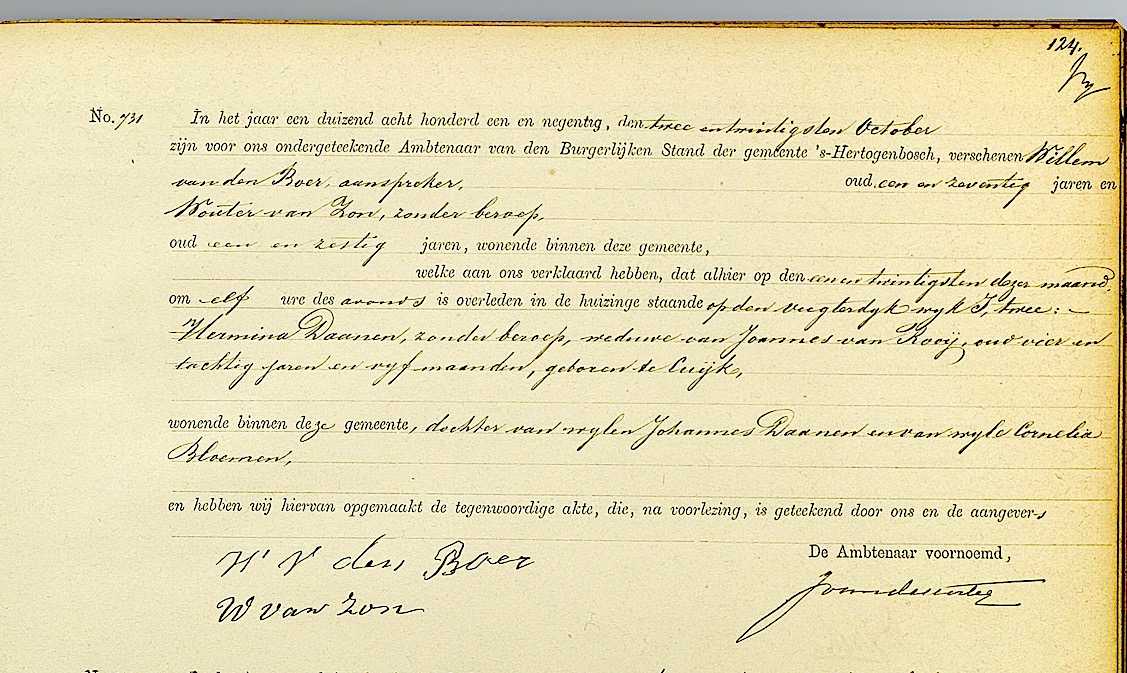 124.
No. 731 In het jaar een duizend acht honderd een en negentig, den twee en twintigsten October
zijn voor ons ondergeteekende Ambtenaar van den Burgerlijken Stand der gemeente 's-Hertogenbosch, verschenen Willem
van den Boer, aanspreker, oud een en zeventig jaren en
Wouter van Zon, zonder beroep,
oud een en zestig jaren, wonende binnen deze gemeente,
welke aan ons verklaard hebben, dat alhier op den een en twintigsten dezer maand,
om elf ure des avonds is overleden in de huizinge staande op den vugterdyk wyk I, twee:
Hermina Daanen, zonder beroep, weduwe van Joannes van Rooij, oud vier en
tachtig jaren en vyf maanden, geboren te Cuijk,
wonende binnen deze gemeente, dochter van wylen Johannes Daanen en van wyle Cornelia
Bloemen,
en hebben wij hiervan opgemaakt de tegenwoordige akte, die, na voorlezing, is geteekend door ons en de aangevers
De Ambtenaar voornoemd,
W V den Boer
W van Zon